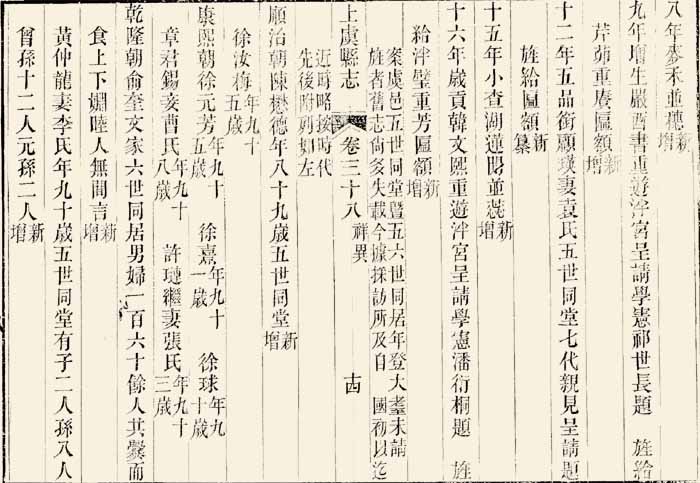 八年麥禾並穗新增
九年增生嚴酉書重遊泮宮呈請學憲祁世長題　旌給
芹茆重賡匾額新增
十二年五品銜顧瑛妻袁氏五世同堂七代親見呈請題
旌給匾額新纂
十五年小查湖蓮開並蔕新增
十六年歲貢韓文熙重遊泮宮呈請學憲潘衍桐題　旌
給泮璧重芳匾額新增
案虞邑五世同堂曁五六世同居年登大耋未請
旌者舊志尙多失載今據採訪所及自　國初以迄
近時略按時代
先後附列如左
上虞縣志　卷三十八　祥異　十四
順治朝陳懋德年八十九歲五世同堂新增
徐汝梅年九十五歲
康熙朝徐元芳年九十五歲　徐熹年九十一歲　徐球年九十歲
章君錫妾曹氏年九十八歲　許璉繼妻張氏年九十三歲
乾隆朝俞奎文家六世同居男婦一百六十餘人共爨而
食上下婣睦人無閒言新增
黃仲龍妻李氏年九十歲五世同堂有子二人孫八人
曾孫十二人元孫二人新增